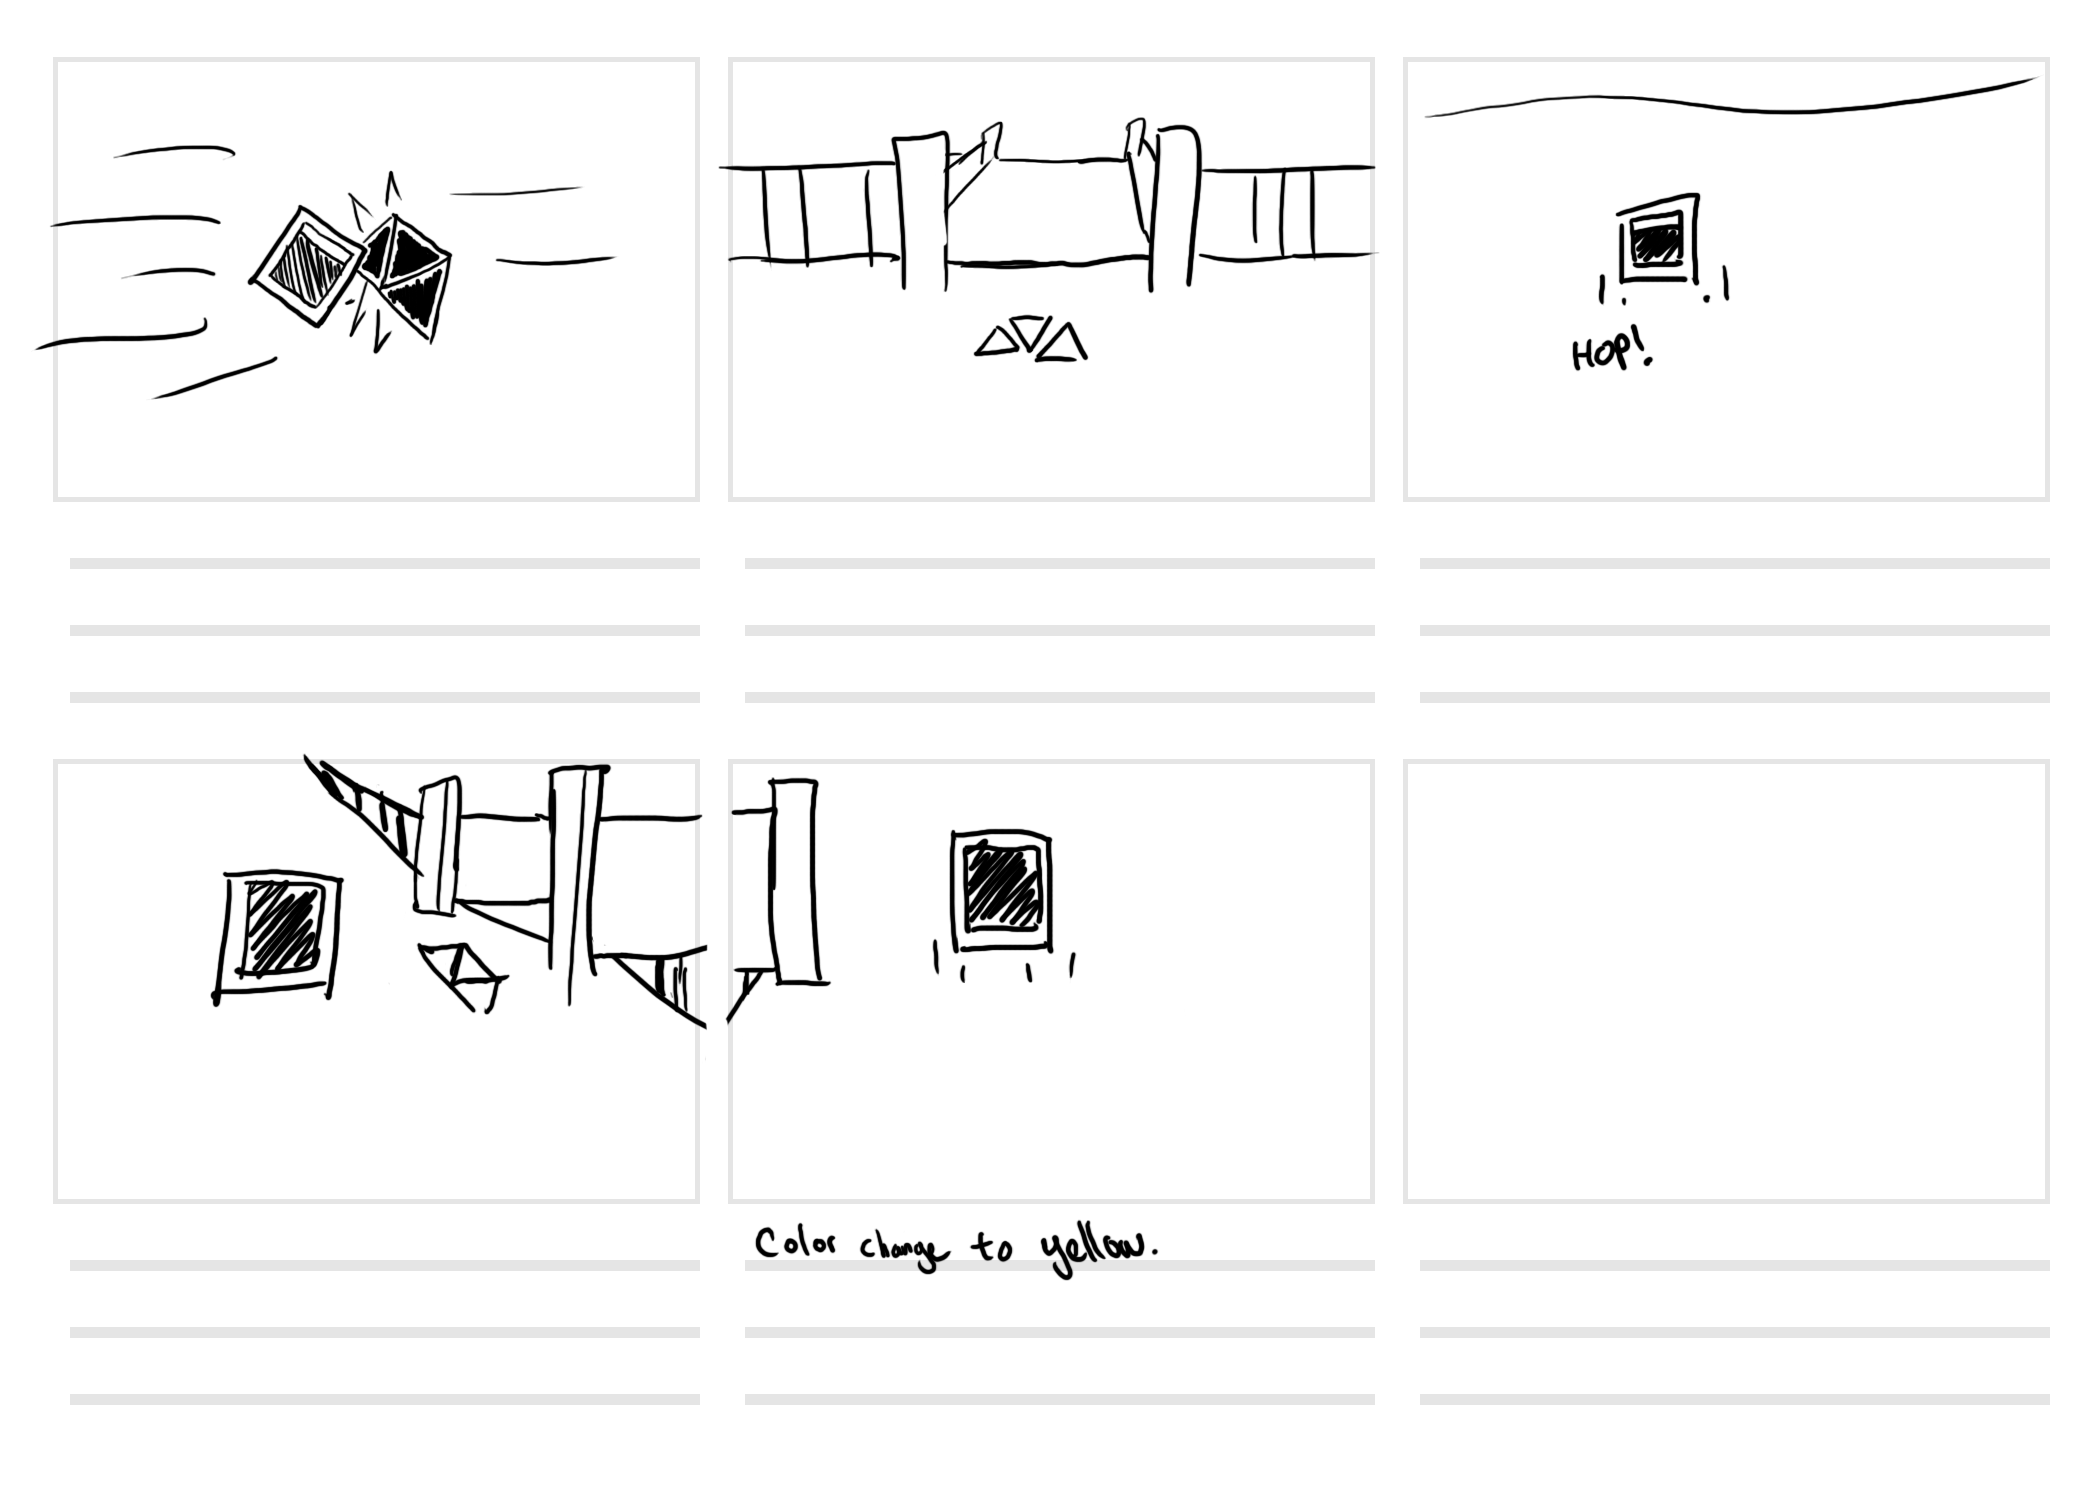 HOP!
Color change to yellow.